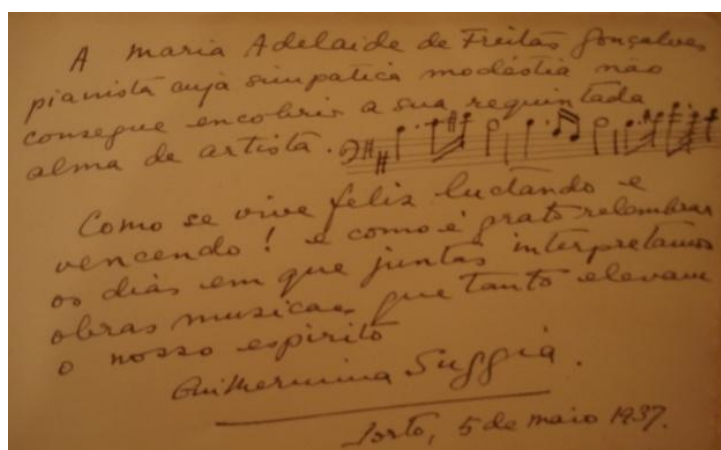 A Maria Adelaide de Freitas Gonçalves
pianista cuja simpatica modéstia não
consegue encobrir a sua requintada
alma de artista.
Como se vive feliz luctando e
vencendo! e como é grato relembrar
os dias em que juntas interpretamos
obras musicaes que tanto elevam
o nosso espirito
Guilhermina Suggia.
Porto, 5 de maio 1937.